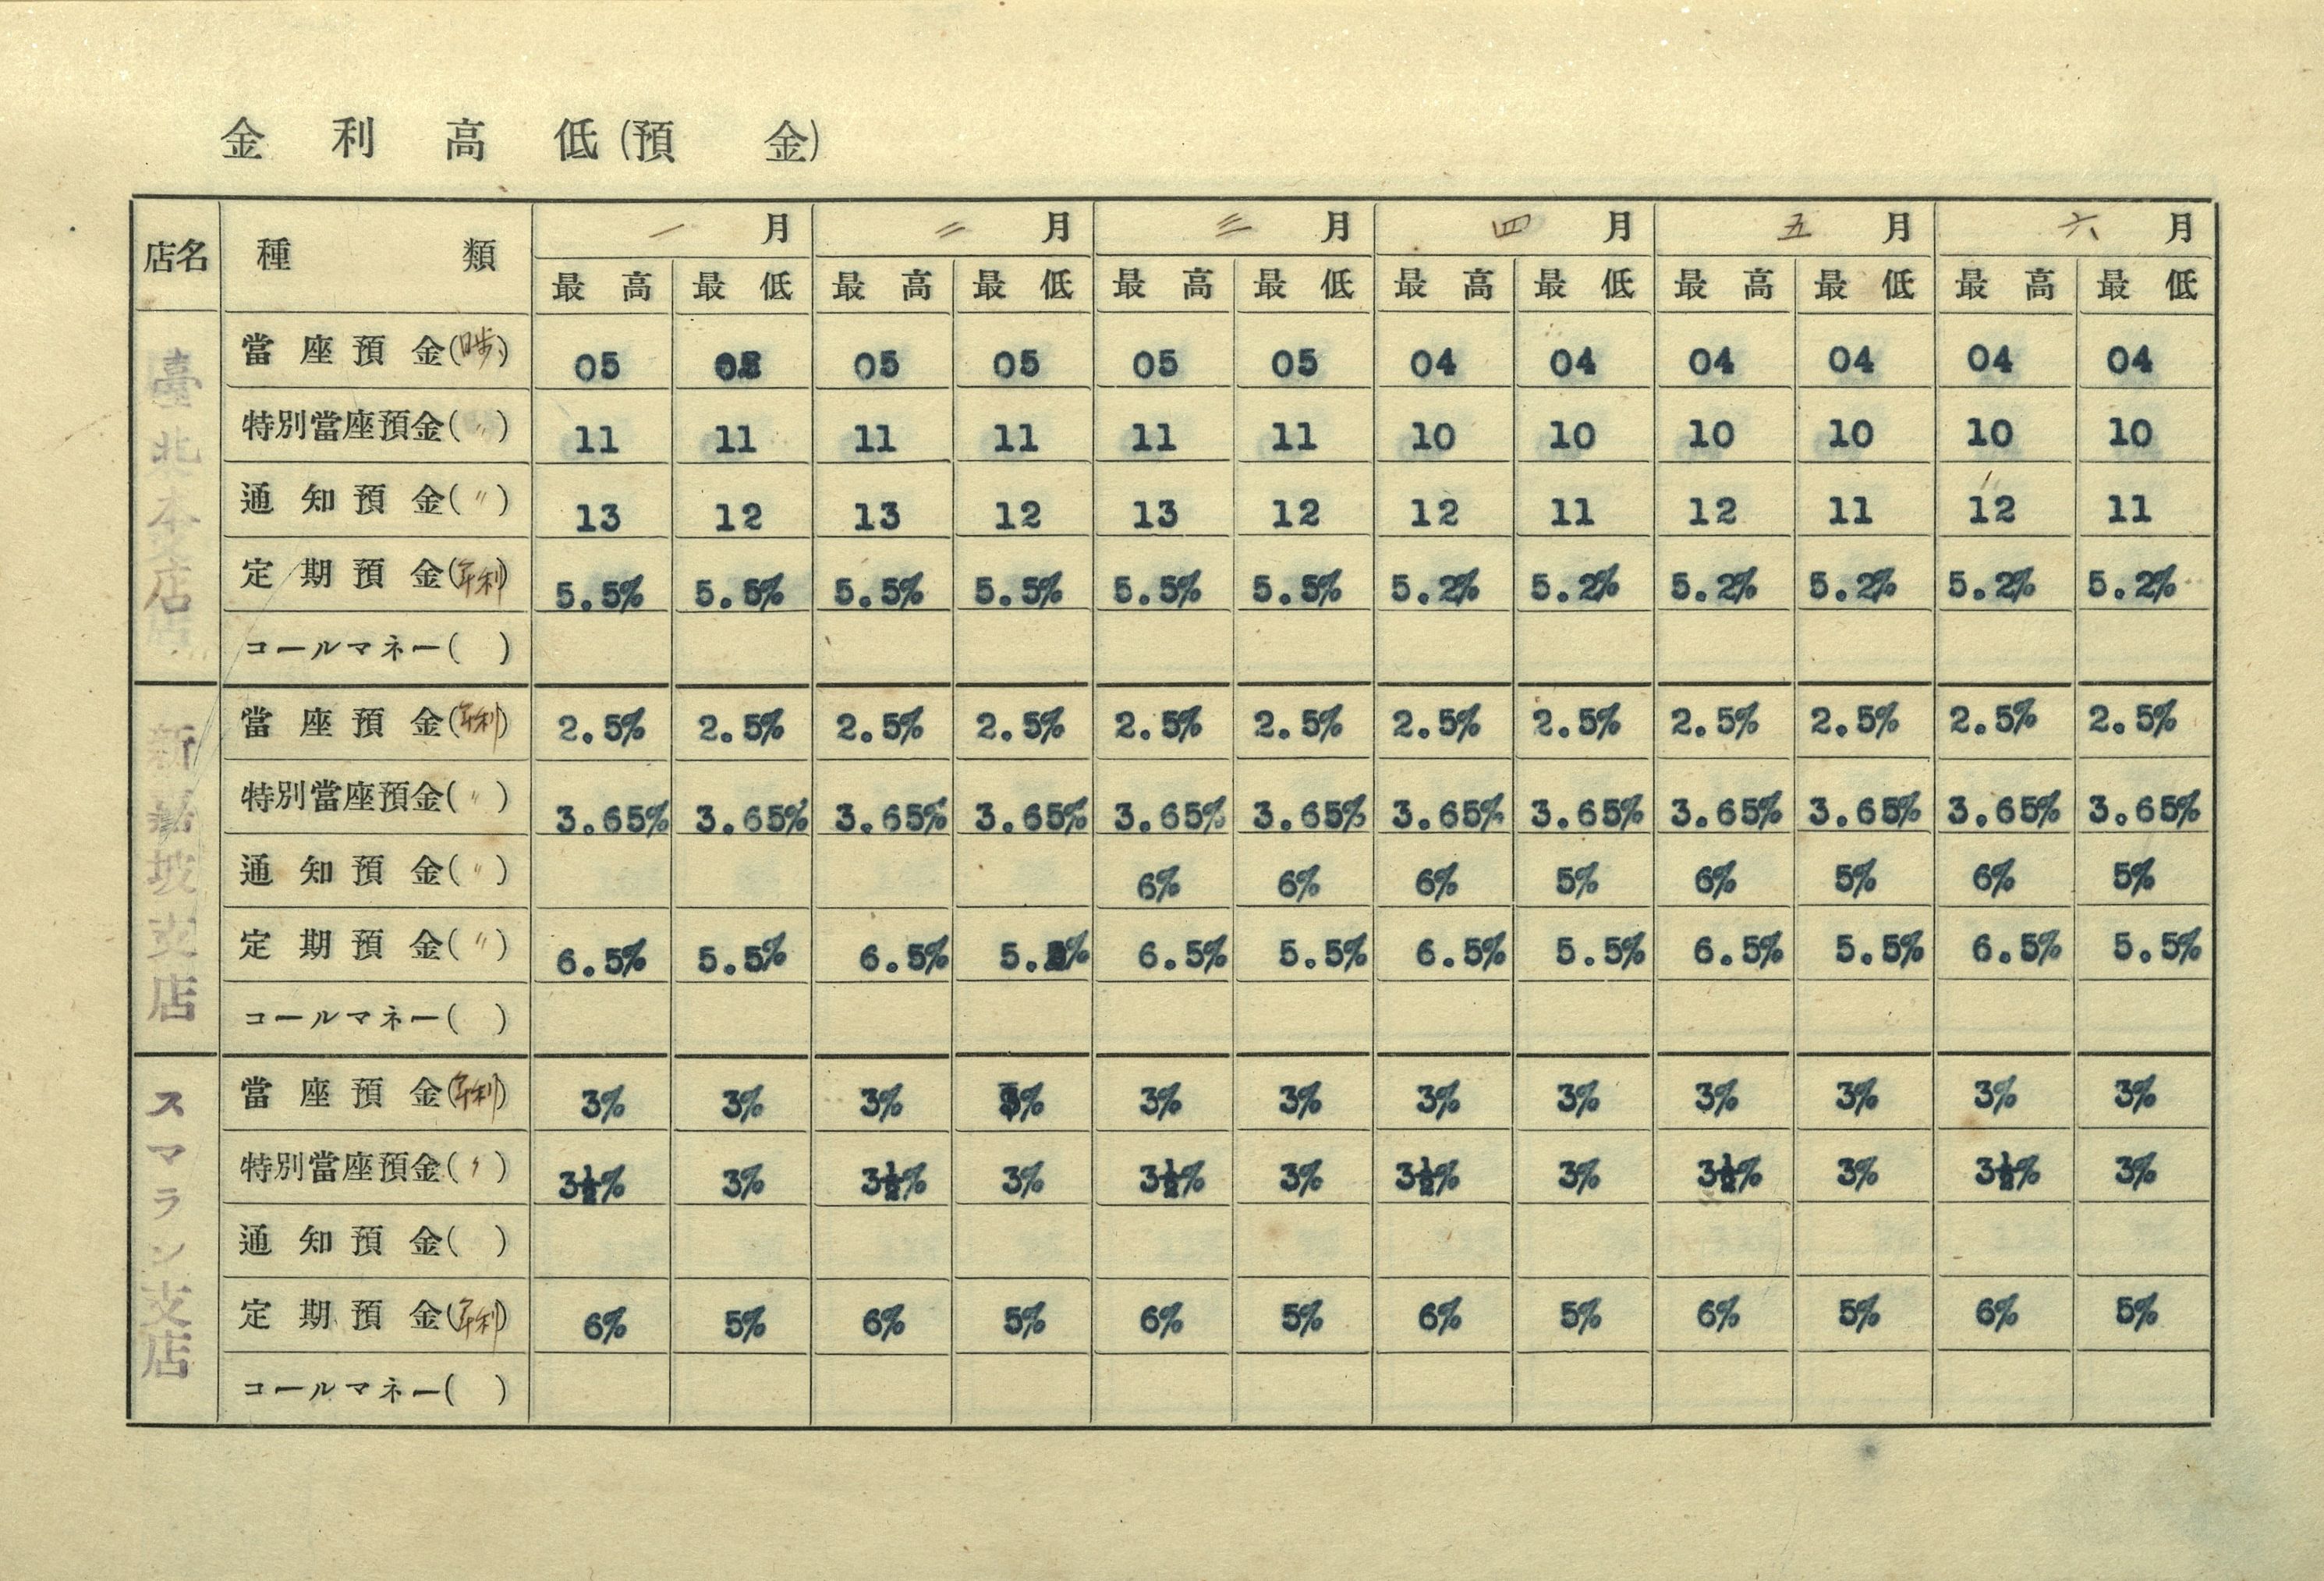 金利高低(預金)
店名 種類 一月 二月 三月 四月 五月 六月
最高 最低 最高 最低 最高 最低 最高 最低 最高 最低 最高 最低
臺北本店
當座預金(日歩) 05 05 05 05 05 05 04 04 04 04 04 04
特別當座預金(〃) 11 11 11 11 11 11 10 10 10 10 10 10
通知預金(〃) 13 12 13 12 13 12 12 11 12 11 12 11
定期預金(年利) 5.5% 5.5% 5.5% 5.5% 5.5% 5.5% 5.2% 5.2% 5.2% 5.2% 5.2% 5.2%
コールマネー( )
新嘉坡支店
當座預金(年利) 2.5% 2.5% 2.5% 2.5% 2.5% 2.5% 2.5% 2.5% 2.5% 2.5% 2.5% 2.5%
特別當座預金(〃) 3.65% 3.65% 3.65% 3.65% 3.65% 3.65% 3.65% 3.65% 3.65% 3.65% 3.65% 3.65%
通知預金(〃) 6% 6% 6% 5% 6% 5% 6% 5%
定期預金(〃) 6.5% 5.5% 6.5% 5.5% 6.5% 5.5% 6.5% 5.5% 6.5% 5.5% 6.5% 5.5%
コールマネー( )
スマラン支店
當座預金(年利) 3% 3% 3% 3% 3% 3% 3% 3% 3% 3% 3% 3%
特別當座預金(〃) 3½% 3% 3½% 3% 3½% 3% 3½% 3% 3½% 3% 3½% 3%
通知預金( )
定期預金(年利) 6% 5% 6% 5% 6% 5% 6% 5% 6% 5% 6% 5%
コールマネー( )